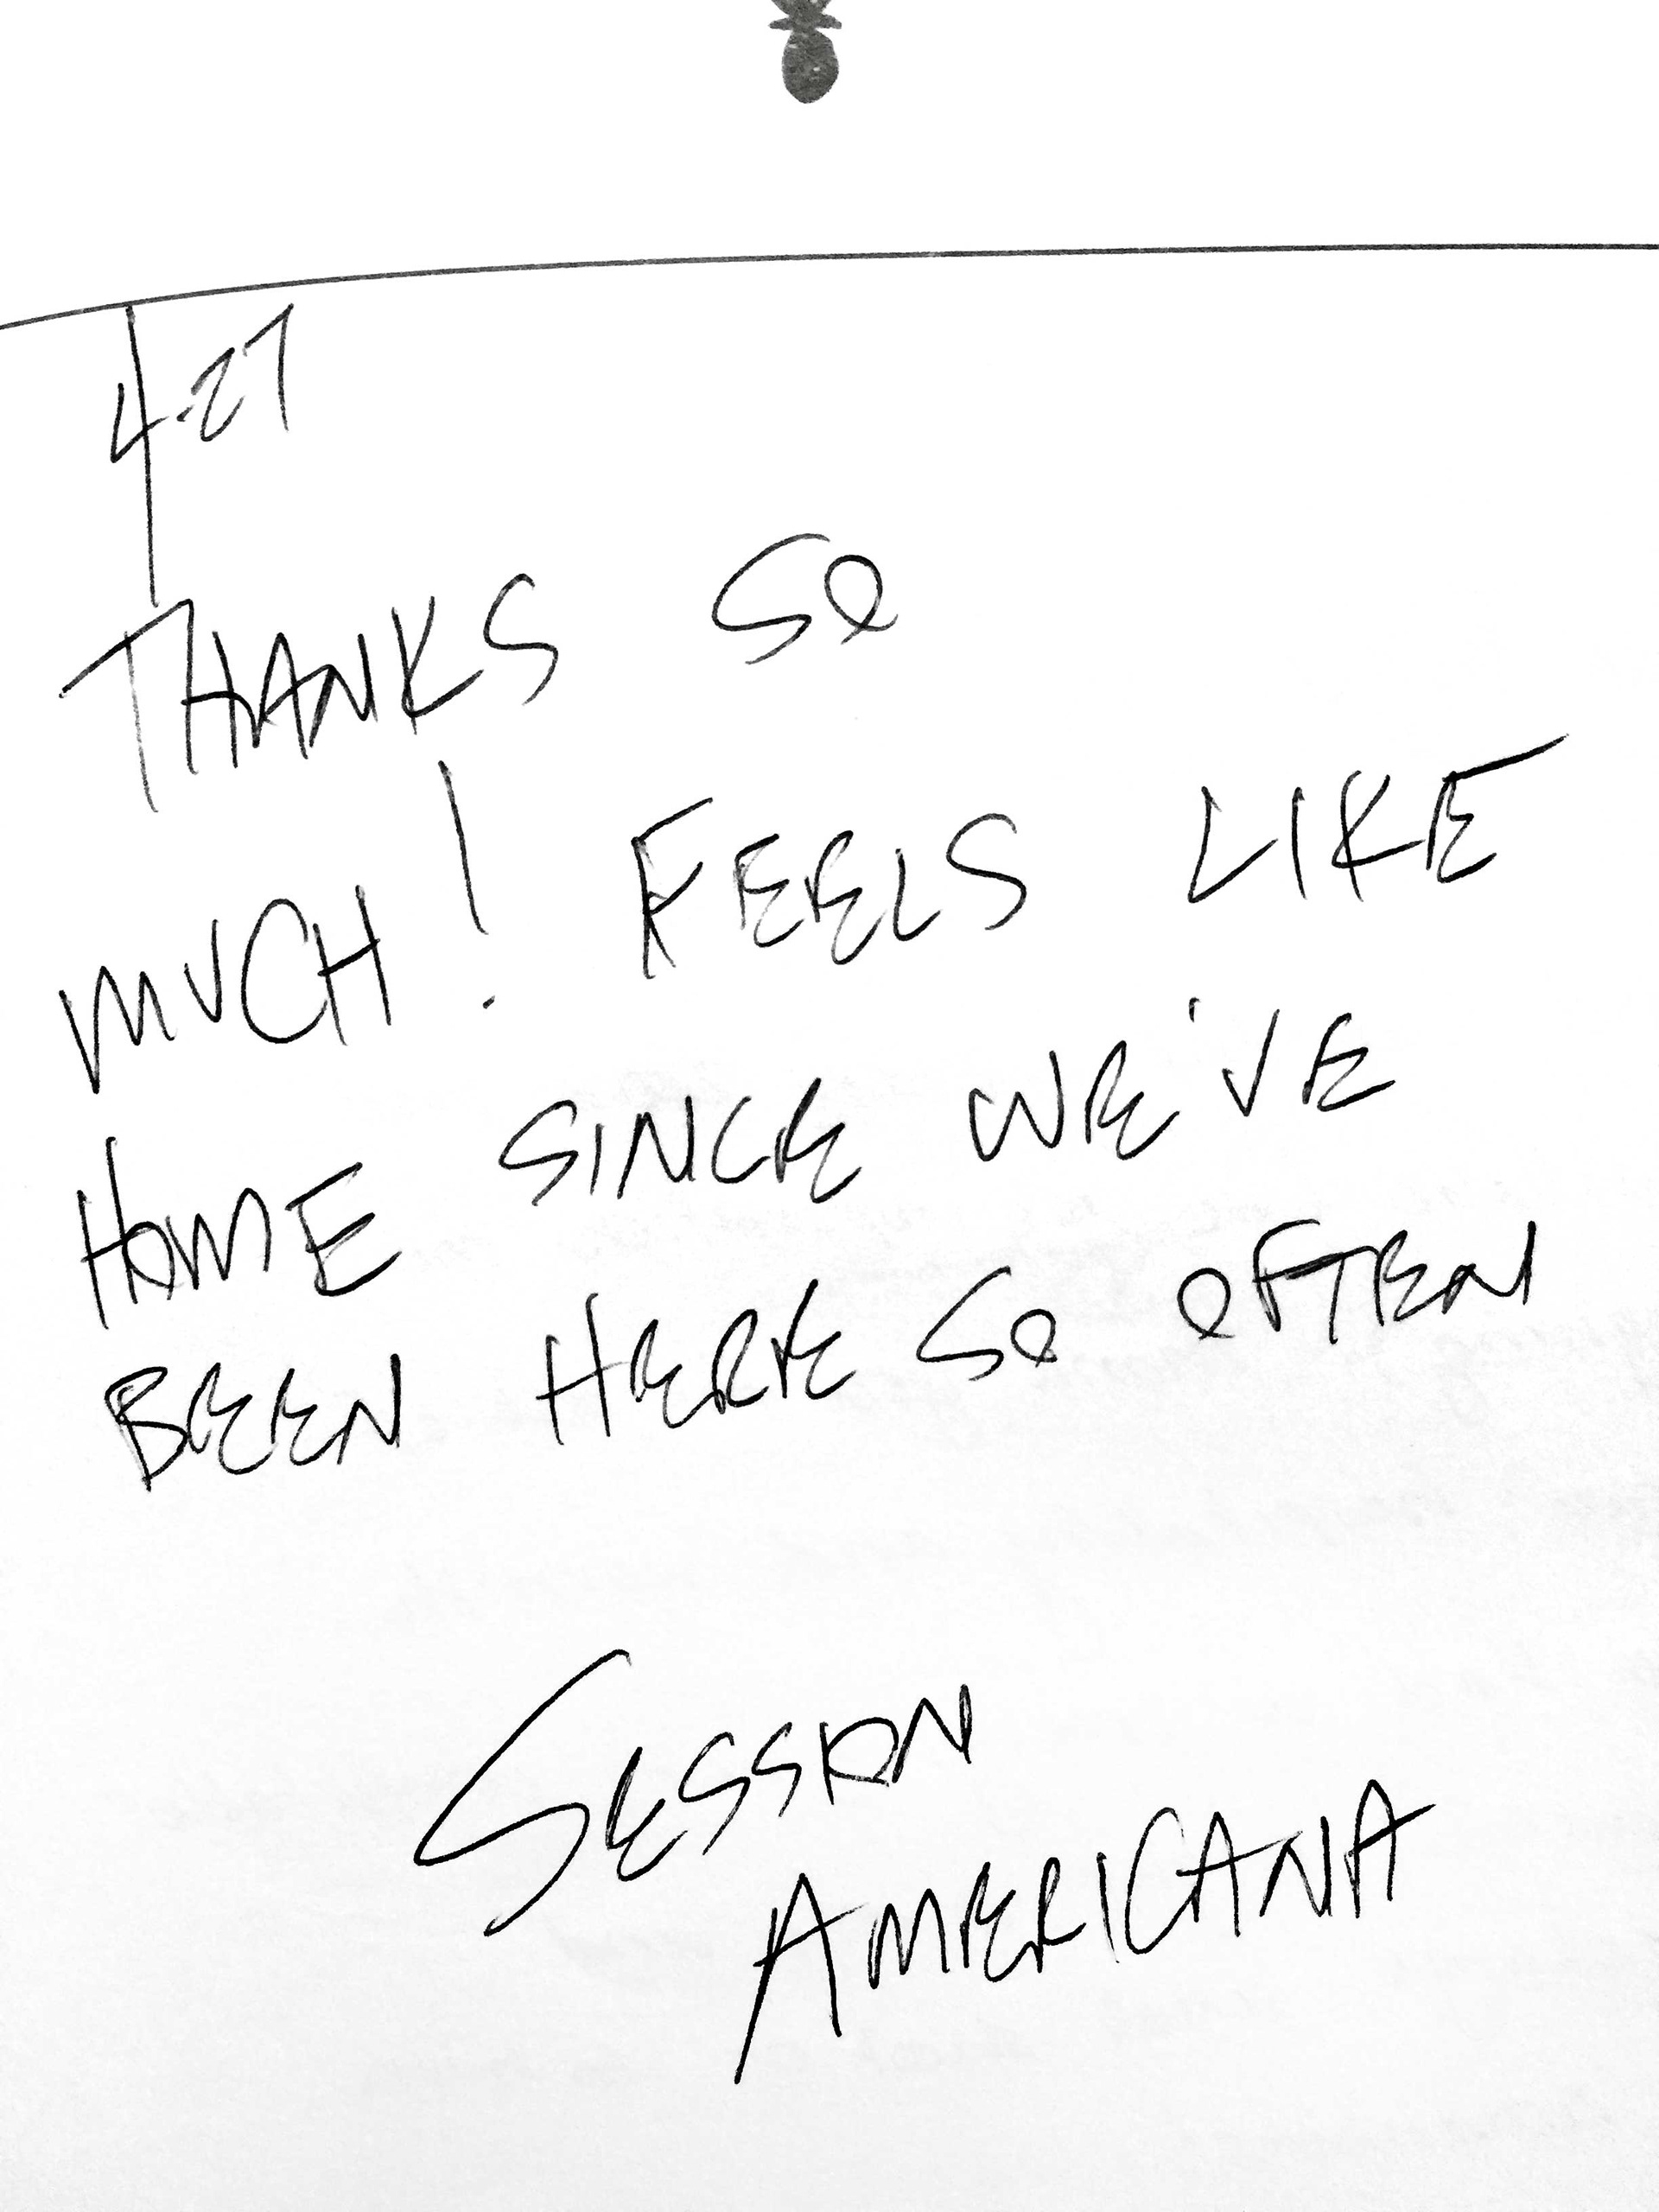 4-27
THANKS SO
MUCH! FEELS LIKE
HOME SINCE WE'VE
BEEN HERE SO OFTEN
SESSION
AMERICANA